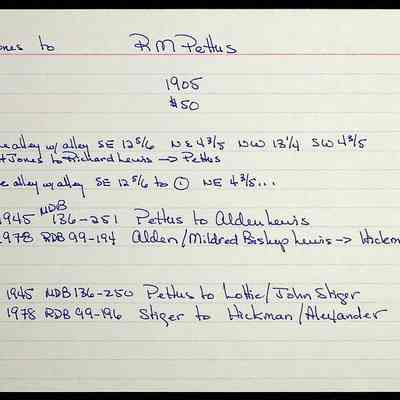 ones to R M Pettus
1905
$50
e alley w/ alley SE 12 5/6 NE 4 3/5 NW 13 1/4 SW 4 3/5
t Jones to Richard Lewis → Pettus
e alley w/ alley SE 12 5/6 to ① NE 4 3/5...
1945 MDB 136-251 Pettus to Alden Lewis
1978 RDB 99-194 Alden/Mildred Bishup Lewis → Hickm
1945 MDB 136-250 Pettus to Lottie/John Stiger
1978 RDB 99-196 Stiger to Hickman/Alexander